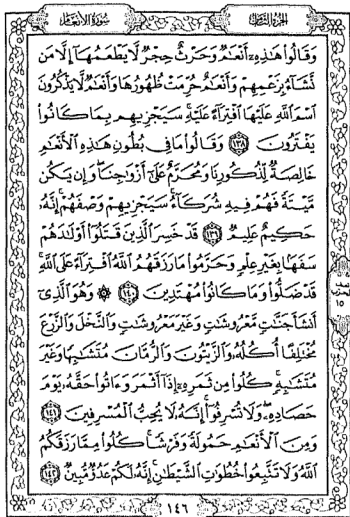 الجزء الثامن
سورة الأنعام
وَقَالُوا هَٰذِهِۦٓ أَنْعَٰمٌ وَحَرْثٌ حِجْرٌ لَّا يَطْعَمُهَآ إِلَّا مَن
نَّشَآءُ بِزَعْمِهِمْ وَأَنْعَٰمٌ حُرِّمَتْ ظُهُورُهَا وَأَنْعَٰمٌ لَّا يَذْكُرُونَ
ٱسْمَ ٱللَّهِ عَلَيْهَا ٱفْتِرَآءً عَلَيْهِ ۚ سَيَجْزِيهِم بِمَا كَانُوا
يَفْتَرُونَ ١٣٨ وَقَالُوا مَا فِى بُطُونِ هَٰذِهِ ٱلْأَنْعَٰمِ
خَالِصَةٌ لِّذُكُورِنَا وَمُحَرَّمٌ عَلَىٰٓ أَزْوَٰجِنَا ۖ وَإِن يَكُن
مَّيْتَةً فَهُمْ فِيهِ شُرَكَآءُ ۚ سَيَجْزِيهِمْ وَصْفَهُمْ ۚ إِنَّهُۥ
حَكِيمٌ عَلِيمٌ ١٣٩ قَدْ خَسِرَ ٱلَّذِينَ قَتَلُوٓا أَوْلَٰدَهُمْ
سَفَهًۢا بِغَيْرِ عِلْمٍ وَحَرَّمُوا مَا رَزَقَهُمُ ٱللَّهُ ٱفْتِرَآءً عَلَى ٱللَّهِ ۚ
قَدْ ضَلُّوا وَمَا كَانُوا مُهْتَدِينَ ١٤٠ ۞ وَهُوَ ٱلَّذِىٓ
أَنشَأَ جَنَّٰتٍ مَّعْرُوشَٰتٍ وَغَيْرَ مَعْرُوشَٰتٍ وَٱلنَّخْلَ وَٱلزَّرْعَ
مُخْتَلِفًا أُكُلُهُۥ وَٱلزَّيْتُونَ وَٱلرُّمَّانَ مُتَشَٰبِهًا وَغَيْرَ
مُتَشَٰبِهٍ ۚ كُلُوا مِن ثَمَرِهِۦٓ إِذَآ أَثْمَرَ وَءَاتُوا حَقَّهُۥ يَوْمَ
حَصَادِهِۦ ۖ وَلَا تُسْرِفُوٓا ۚ إِنَّهُۥ لَا يُحِبُّ ٱلْمُسْرِفِينَ ١٤١
وَمِنَ ٱلْأَنْعَٰمِ حَمُولَةً وَفَرْشًا ۚ كُلُوا مِمَّا رَزَقَكُمُ
ٱللَّهُ وَلَا تَتَّبِعُوا خُطُوَٰتِ ٱلشَّيْطَٰنِ ۚ إِنَّهُۥ لَكُمْ عَدُوٌّ مُّبِينٌ ١٤٢
١٥
١٤٦